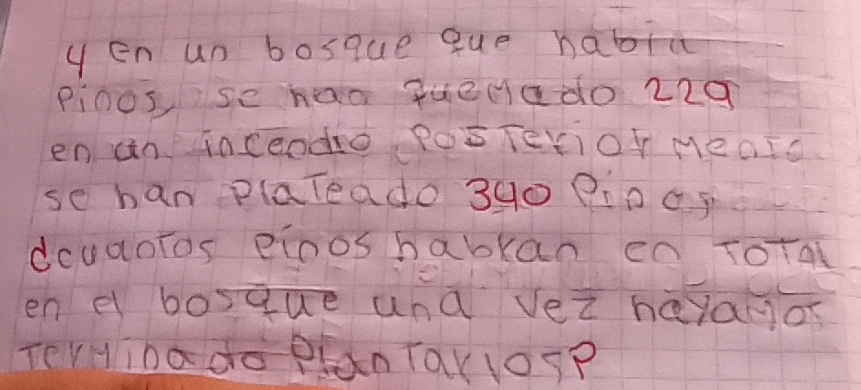 4 en un bosque que habia
Pinos, se han quemado 229
en un incendio, Posteriormente
se han Plateado 340 Pinos
dcuantos Pinos habran en total
en el bosque una vez hayamos
terminado Plantarlos?